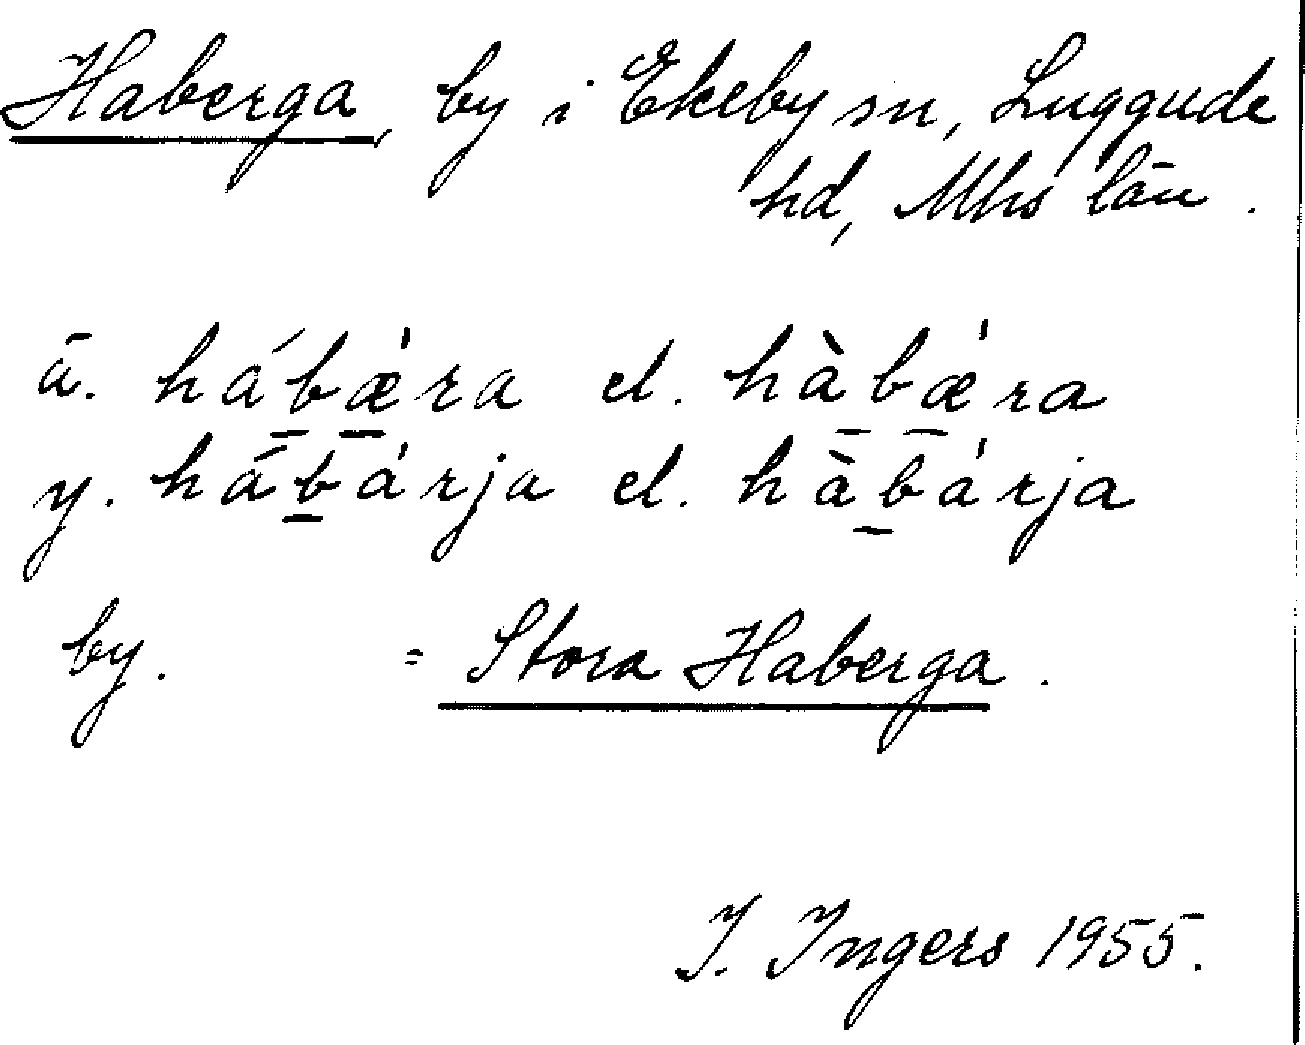 Haberga, by i Ekeby sn, Luggude
hd, Mhs län.
ä. hábǽra el. hàbǽra
y. hábárja el. hàbárja
by. = Stora Haberga.
I. Ingers 1955.